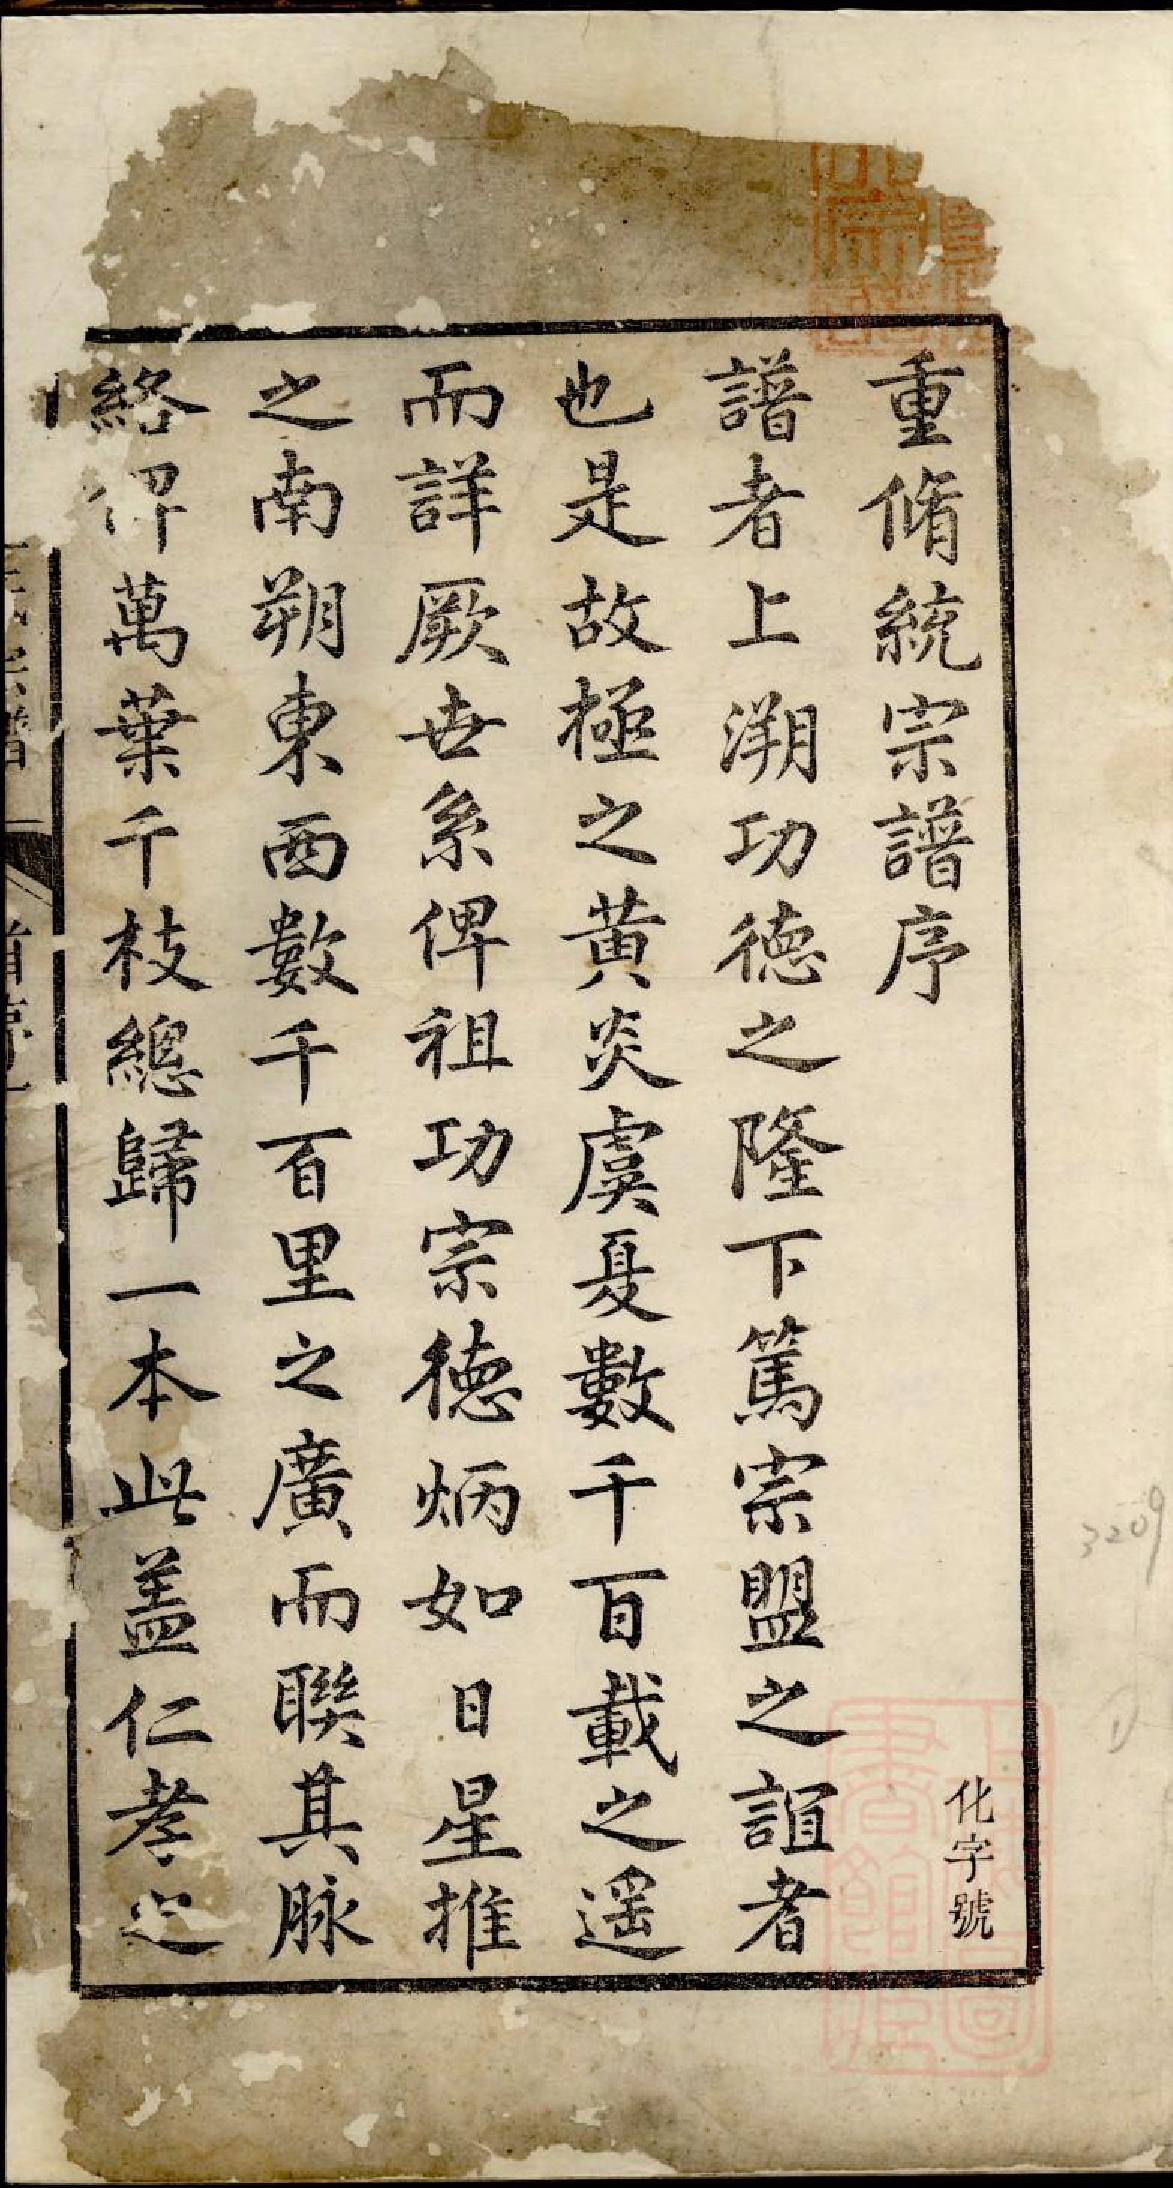 重脩統宗譜序
化字號
譜者上溯功德之隆下篤宗盟之誼者
也是故極之黄炎虞夏數千百載之遥
而詳厥世系俾祖功宗德炳如日星推
之南朔東西數千百里之廣而聯其脉
絡俾萬葉千枝總歸一本此盖仁孝之
氏宗譜
首序
3209